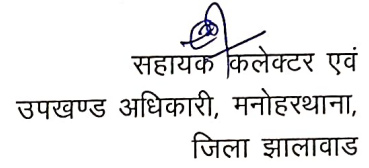 सहायक कलेक्टर एवं
उपखण्ड अधिकारी, मनोहरथाना,
जिला झालावाड